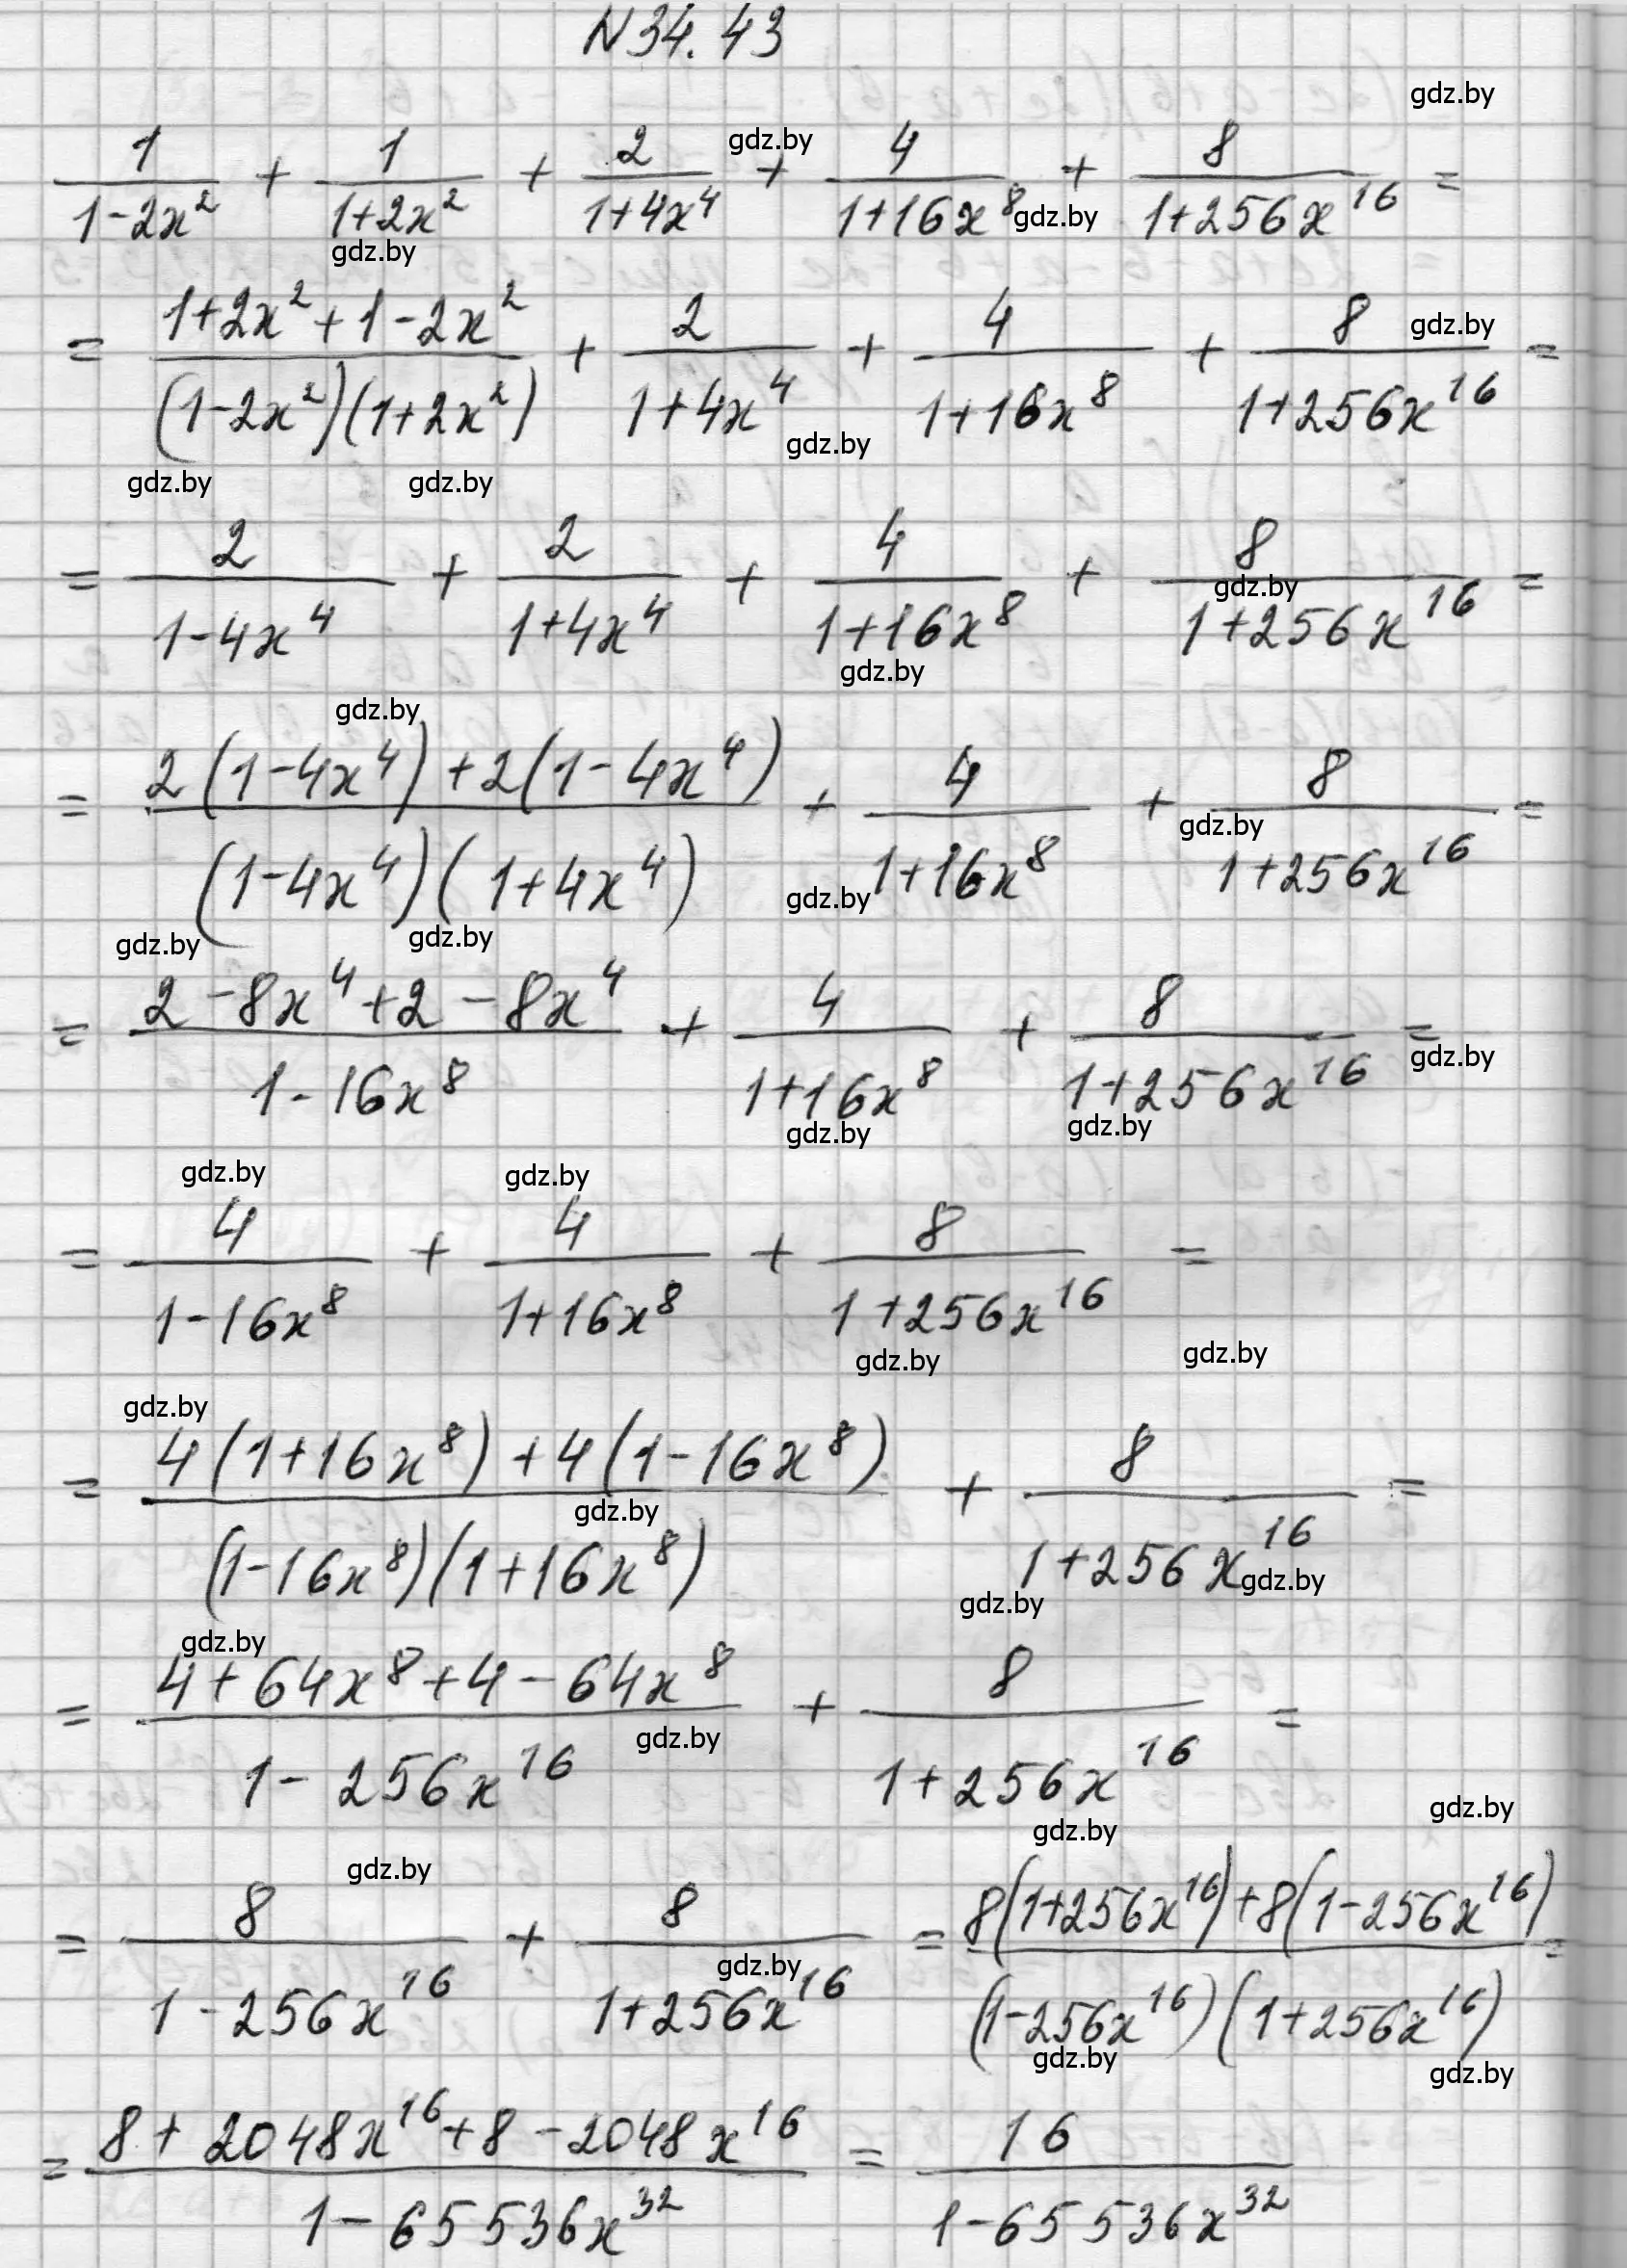 N 34.43
gdz.by
1/(1-2x²) + 1/(1+2x²) + 2/(1+4x⁴) + 4/(1+16x⁸) + 8/(1+256x¹⁶) =
gdz.by gdz.by gdz.by
= (1+2x²+1-2x²)/((1-2x²)(1+2x²)) + 2/(1+4x⁴) + 4/(1+16x⁸) + 8/(1+256x¹⁶) =
gdz.by gdz.by gdz.by gdz.by
= 2/(1-4x⁴) + 2/(1+4x⁴) + 4/(1+16x⁸) + 8/(1+256x¹⁶) =
gdz.by gdz.by gdz.by
= (2(1-4x⁴)+2(1-4x⁴))/((1-4x⁴)(1+4x⁴)) + 4/(1+16x⁸) + 8/(1+256x¹⁶) =
gdz.by gdz.by gdz.by gdz.by
= (2-8x⁴+2-8x⁴)/(1-16x⁸) + 4/(1+16x⁸) + 8/(1+256x¹⁶) =
gdz.by gdz.by gdz.by
gdz.by gdz.by
= 4/(1-16x⁸) + 4/(1+16x⁸) + 8/(1+256x¹⁶) =
gdz.by gdz.by
gdz.by
= (4(1+16x⁸)+4(1-16x⁸))/((1-16x⁸)(1+16x⁸)) + 8/(1+256x¹⁶) =
gdz.by gdz.by gdz.by
gdz.by
= (4+64x⁸+4-64x⁸)/(1-256x¹⁶) + 8/(1+256x¹⁶) =
gdz.by gdz.by gdz.by
gdz.by
= 8/(1-256x¹⁶) + 8/(1+256x¹⁶) = (8(1+256x¹⁶)+8(1-256x¹⁶))/((1-256x¹⁶)(1+256x¹⁶)) =
gdz.by gdz.by gdz.by
= (8+2048x¹⁶+8-2048x¹⁶)/(1-65536x³²) = 16/(1-65536x³²)